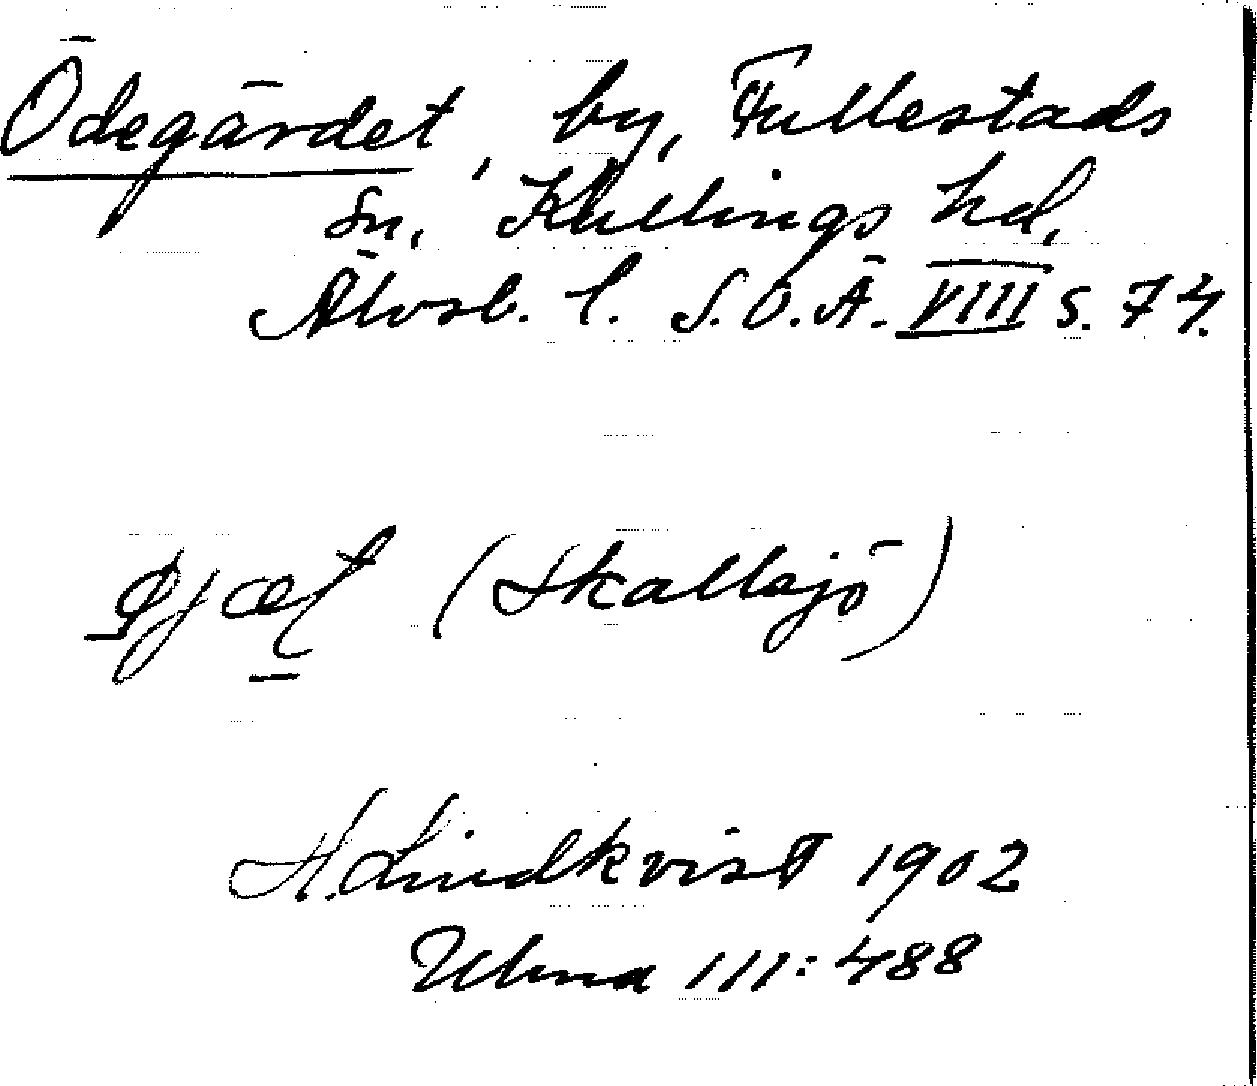 Ödegärdet, by, Fullestads
sn, Kullings hd,
Älvsb. l. S.O.Ä. VIII s. 74.
(Skallsjö)
H. Lindkvist 1902
Ulma 111:488